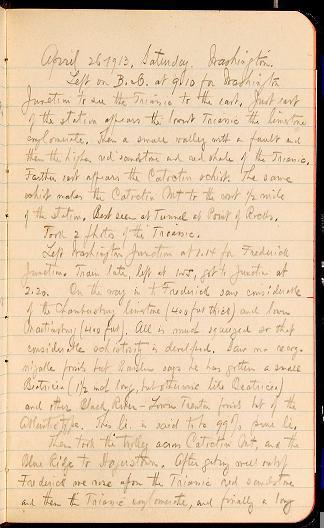 April 26 1913, Saturday. Washington.
Left on B. & O. at 9.10 for Washington
Junction to see the Triassic to the east. Just east
of the station appears the lowest Triassic the limestone
conglomerate. Then a small valley with a fault and
then the higher red sandstone and red shale of the Triassic.
Farther east appears the Catoctin schist. The same
schist makes the Catoctin Mt to the west 1/2 mile
of the station. Best seen at Tunnel at Point of Rocks.
Took 2 photos of the Triassic.
Left Washington Junction at 1.14 for Frederick
Junction. Train late, left at 1.55, got to Junction at
2.20. On the way in to Frederick saw considerable
of the Chambersburg limestone (400 feet thick) and lower
(400 feet). All is much squeezed so that
considerable schistosity is developed. Saw no recog-
nizable fossils but Bassler says he has gotten a small
Beatricea (1 1/2 inch long, but otherwise like Beatricea)
and other Black River - Lower Trenton fossils but of the
Atlantic type. This ls. is said to be 99% pure ls.
Then took the trolley across Catoctin Mt, and the
Blue Ridge to Hagerstown. After getting well out of
Frederick we rose upon the Triassic red sandstone
and then the Triassic conglomerate, and finally a long